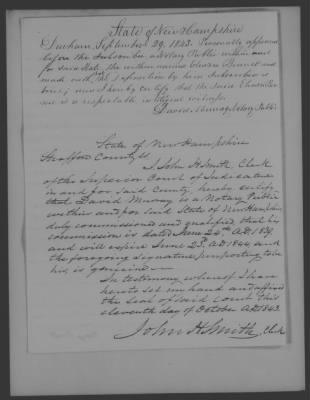 State of New Hampshire
Durham, September 29, 1843. Personally appeared
before the Subscriber a Notary Public within and
for said State, the within named Eleazer Bennet and
made oath that the deposition by him subscribed is
true; and I hereby certify that the said Eleazer Ben
net is a respectable, credible witness.
David Murray Notary Public
State of New Hampshire
Strafford County ss.
I, John H. Smith, Clerk
of the Superior Court of Judicature
in and for said County, hereby certify
that David Murray is a Notary Public
within and for said State of New Hampshire
duly commissioned and qualified, that his
commission is dated June 24th A.D. 1839,
and will expire June 23d A.D. 1844, and
the foregoing signature purporting to be
his, is genuine.
In testimony whereof I have
hereto set my hand and affixed
the seal of said Court this
eleventh day of October A.D. 1843.
John H. Smith, Clerk